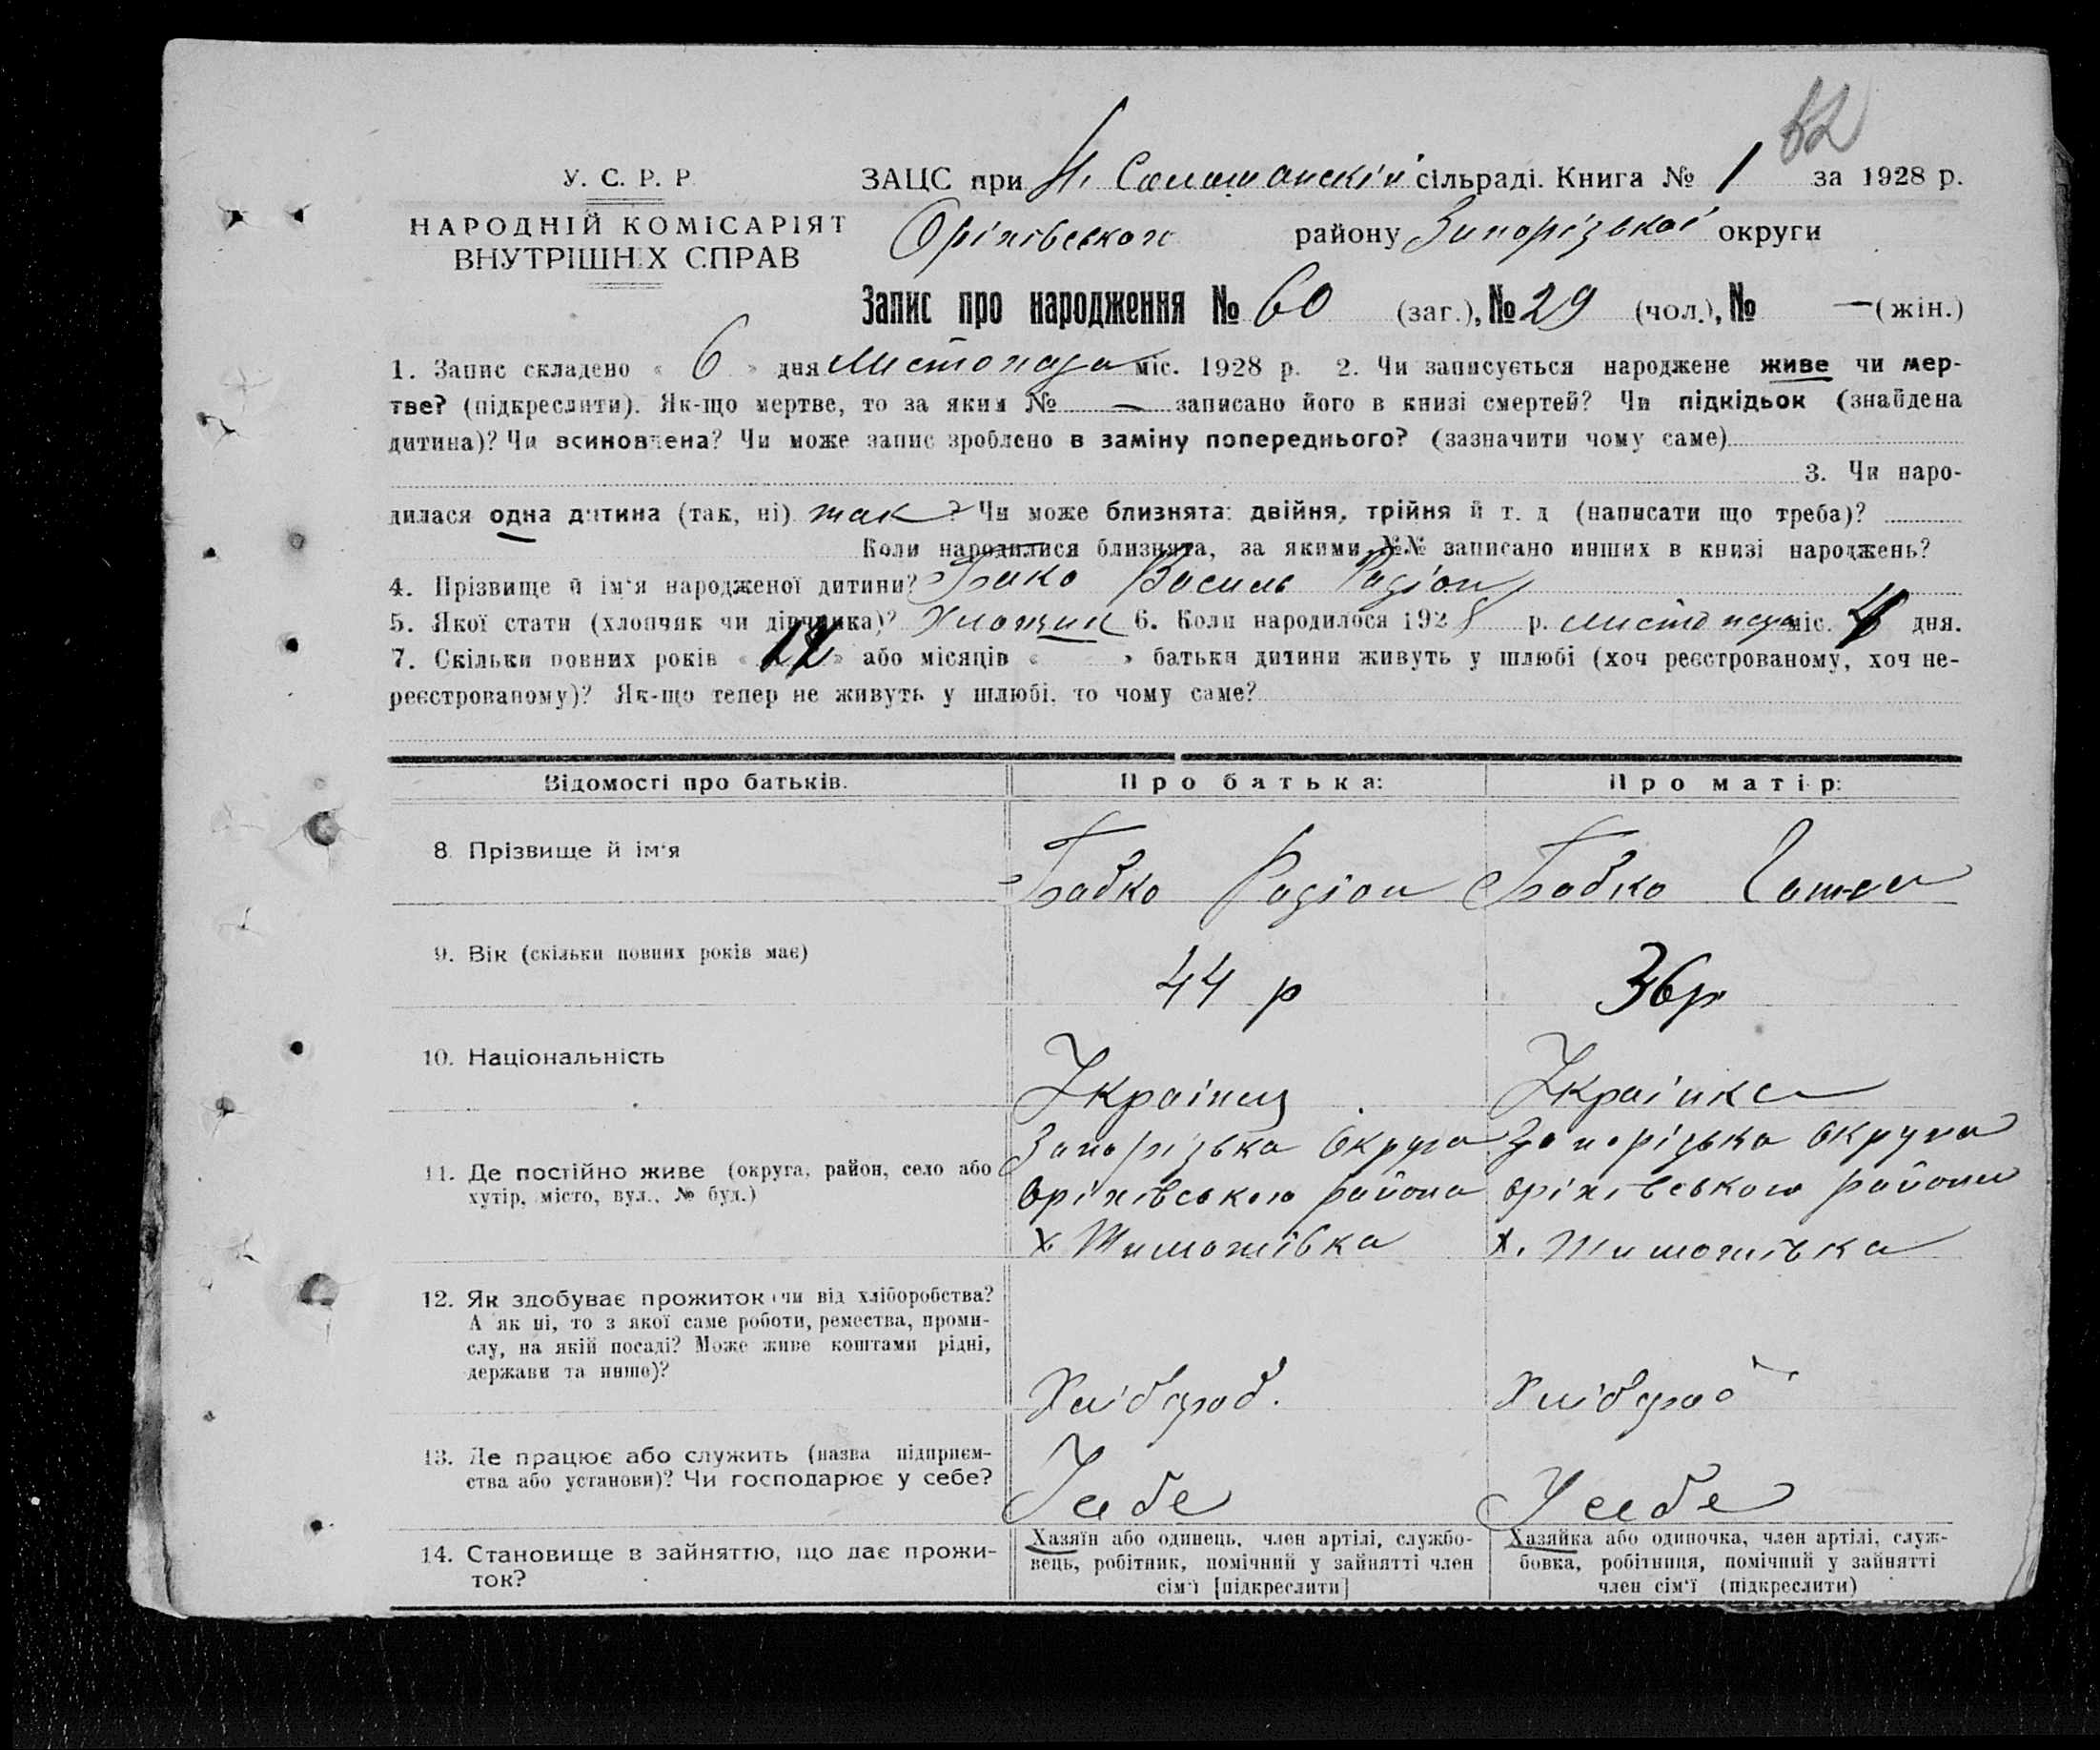 62
У. С. Р. Р
НАРОДНІЙ КОМІСАРІЯТ
ВНУТРІШНІХ СПРАВ
ЗАЦС при Н. сільраді. Книга № 1 за 1928 р.
Оріхівського району Запорізької округи
Запис про народження № 60 (заг.), № 29 (чол.), № — (жін.)
1. Запис складено « 6 » дня листопада міс. 1928 р. 2. Чи записується народжене живе чи мер-
тве? (підкреслити). Як-що мертве, то за яким № — записано його в книзі смертей? Чи підкідьок (знайдена
дитина)? Чи всиновлена? Чи може запис зроблено в заміну попереднього? (зазначити чому саме)
3. Чи наро-
дилася одна дитина (так, ні) так? Чи може близнята: двійня, трійня й т. д (написати що треба)?
Коли народилися близнята, за якими №№ записано инших в книзі народжень?
4. Прізвище й ім‘я народженої дитини? Василь Радіон
5. Якої стати (хлопчик чи дівчинка)? Хлопчик 6. Коли народилося 1928 р. листопада міс. дня.
7. Скільки повних років « » або місяців « » батьки дитини живуть у шлюбі (хоч реєстрованому, хоч не-
реєстрованому)? Як-що тепер не живуть у шлюбі, то чому саме?
Відомості про батьків. Про батька: Про матір:
8. Прізвище й ім‘я Бабко Радіон Бабко
9. Вік (скільки повних років має) 44 р 36 р
10. Національність Українец Українка
11. Де постійно живе (округа, район, село або
хутір, місто, вул., № буд.)
Запорізька округа Запорізька округа
Оріхівського района Оріхівського района
х. Тимошівка х. Тимошівка
12. Як здобуває прожиток (чи від хліборобства?
А як ні, то з якої саме роботи, ремества, проми-
слу, на якій посаді? Може живе коштами рідні,
держави та инше)?
Хлібороб. Хлібороб
13. Де працює або служить (назва підприєм-
ства або установи)? Чи господарює у себе?
У себе У себе
14. Становище в зайняттю, що дає прожи-
ток?
Хазяїн або одинець, член артілі, службо-
вець, робітник, помічний у зайнятті член
сім‘ї [підкреслити]
Хазяйка або одиночка, член артілі, служ-
бовка, робітниця, помічний у зайнятті
член сім‘ї (підкреслити)